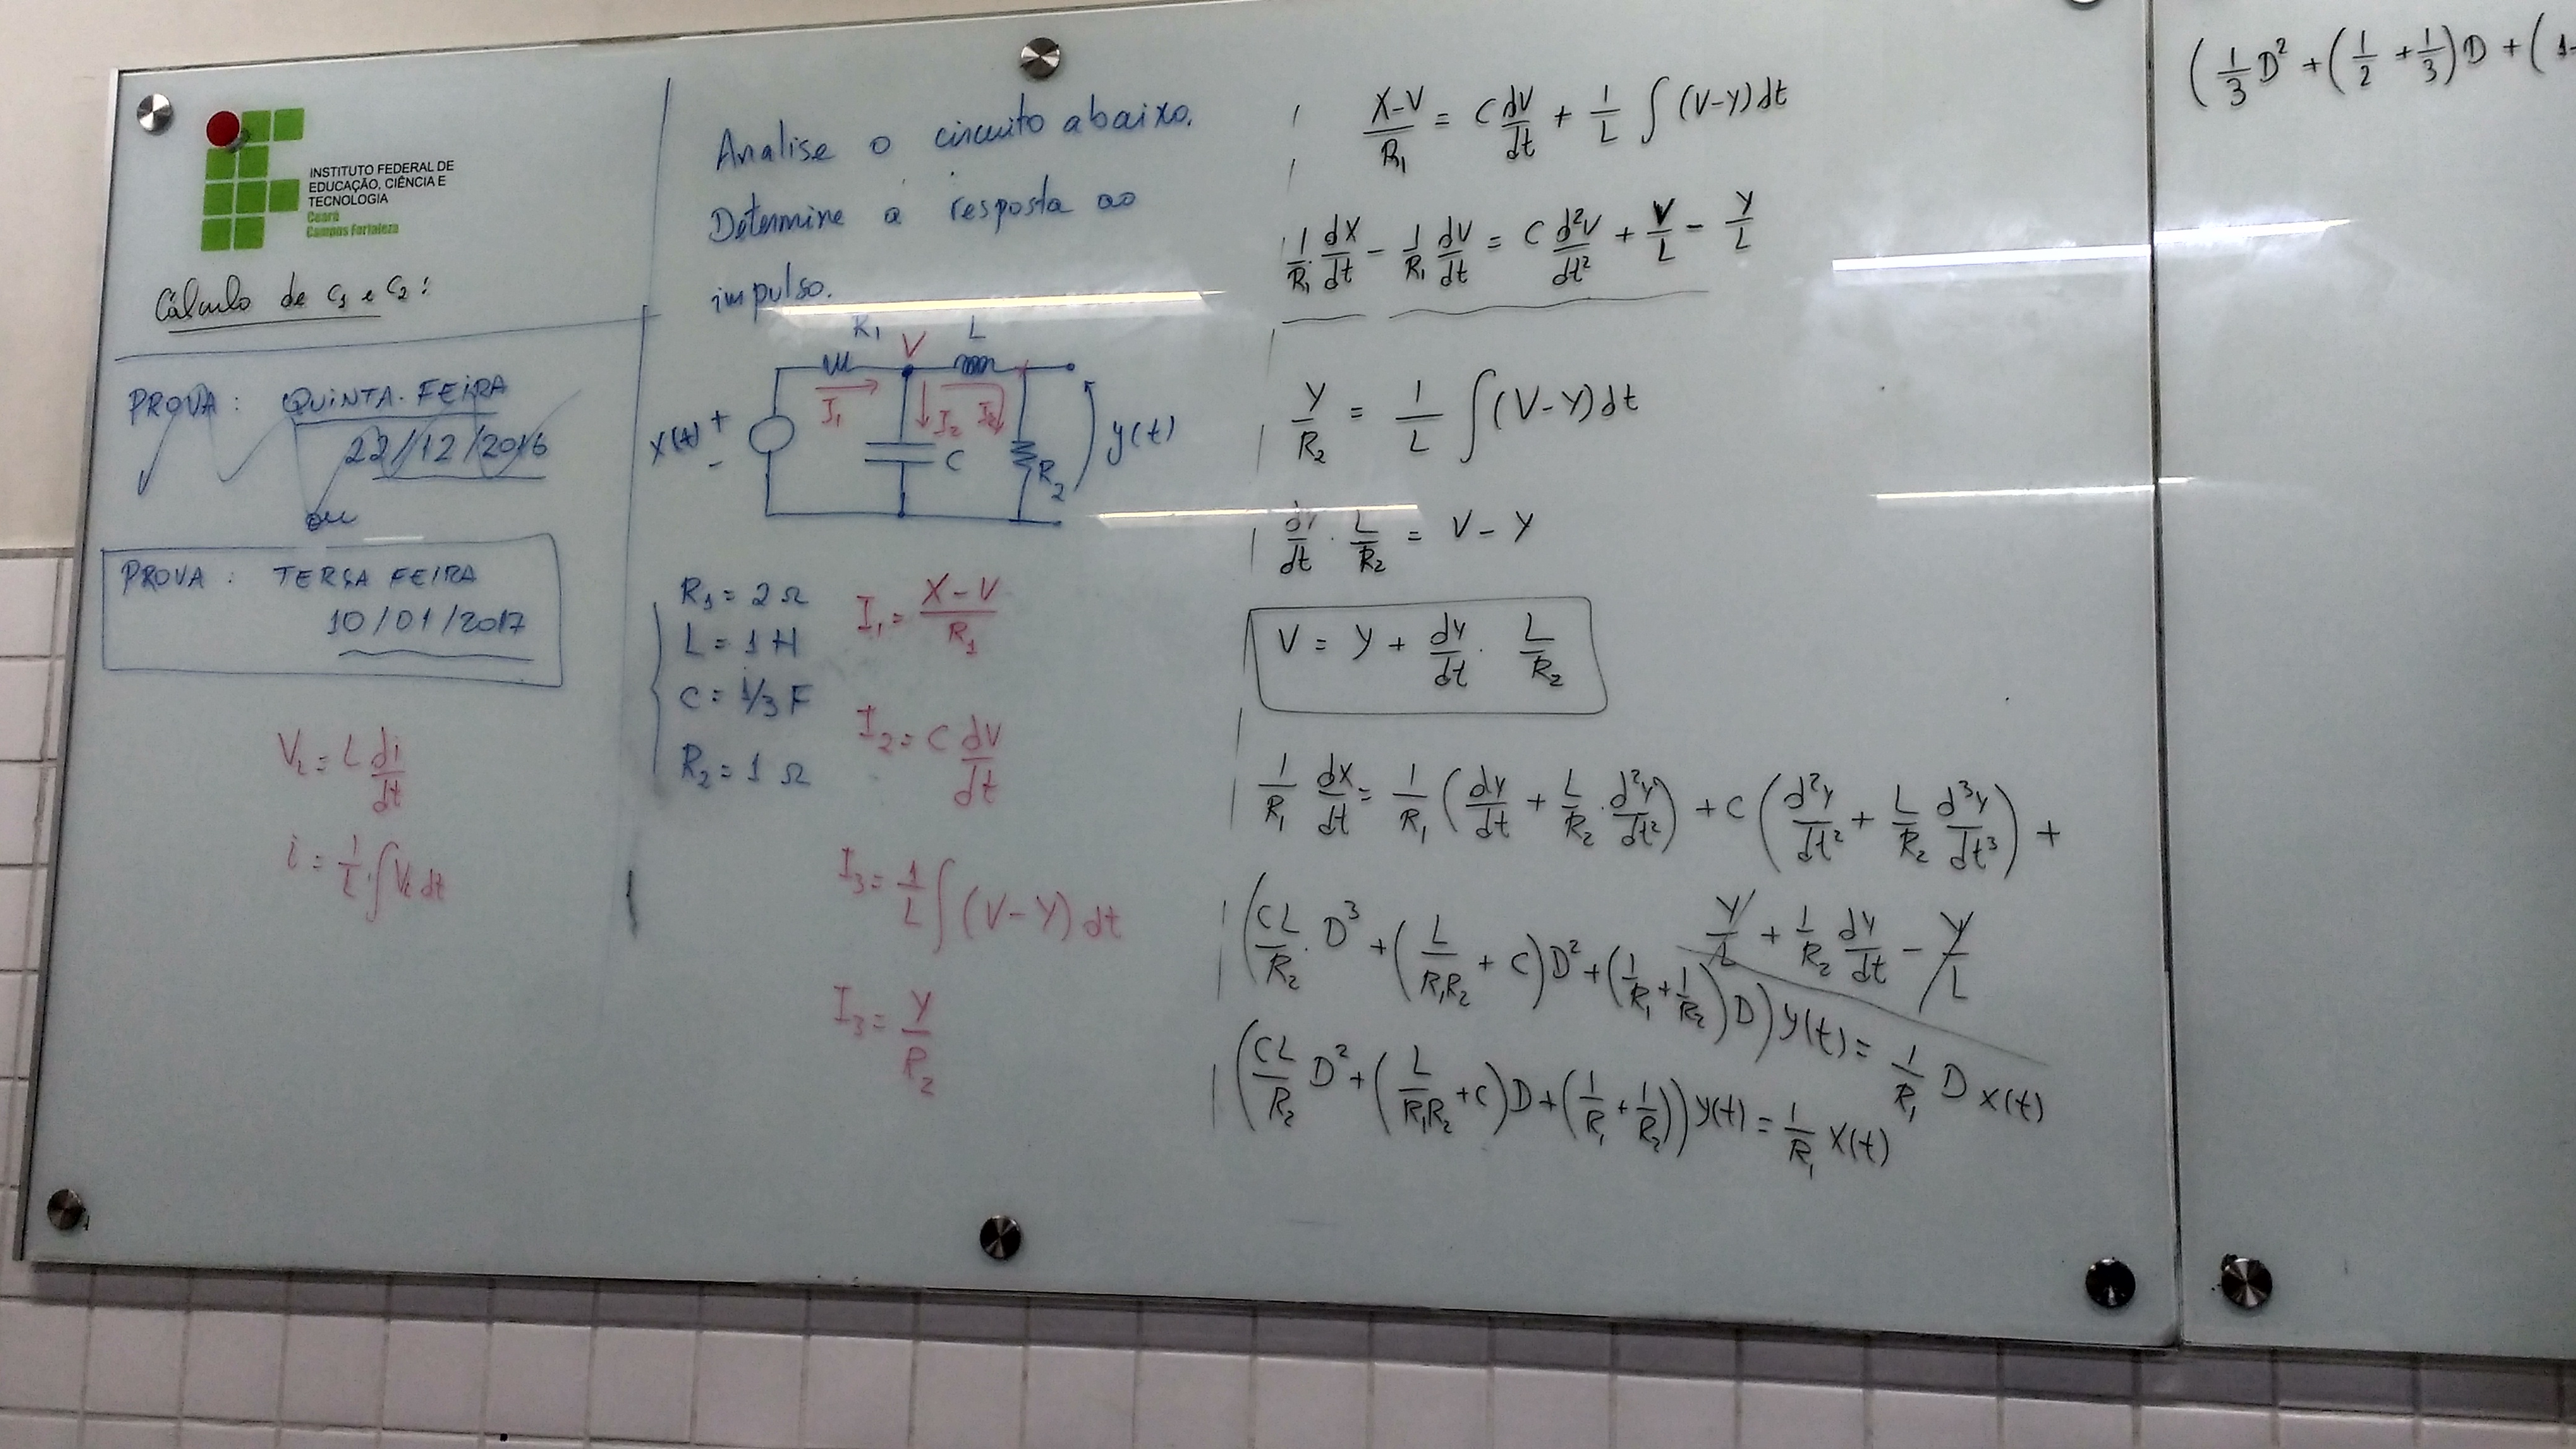 INSTITUTO FEDERAL DE
EDUCAÇÃO, CIÊNCIA E
TECNOLOGIA
Ceará
Campus Fortaleza
Cálculo de C₁ e C₂:
PROVA: QUINTA-FEIRA
22/12/2016
ou
PROVA: TERÇA FEIRA
10/01/2017
V_L = L di/dt
i = 1/L ∫ V_L dt
Analise o circuito abaixo.
Determine a resposta ao
impulso.
R₁ V L
I₁ I₂ I₃
x(t) + - C R₂ y(t)
R₁ = 2 Ω
L = 1 H
C = 1/3 F
R₂ = 1 Ω
I₁ = (X-V)/R₁
I₂ = C dV/dt
I₃ = 1/L ∫ (V-Y) dt
I₃ = Y/R₂
(X-V)/R₁ = C dV/dt + 1/L ∫ (V-Y) dt
1/R₁ · dX/dt - 1/R₁ dV/dt = C d²V/dt² + V/L - Y/L
Y/R₂ = 1/L ∫ (V-Y) dt
dY/dt · L/R₂ = V - Y
V = Y + dY/dt · L/R₂
1/R₁ dX/dt = 1/R₁ (dY/dt + L/R₂ · d²Y/dt²) + C (d²Y/dt² + L/R₂ d³Y/dt³) +
Y/L + 1/R₂ dY/dt - Y/L
(CL/R₂ · D³ + (L/R₁R₂ + C) D² + (1/R₁ + 1/R₂) D) y(t) = 1/R₁ D x(t)
(CL/R₂ D² + (L/R₁R₂ + C) D + (1/R₁ + 1/R₂)) y(t) = 1/R₁ x(t)
(1/3 D² + (1/2 + 1/3) D + (1